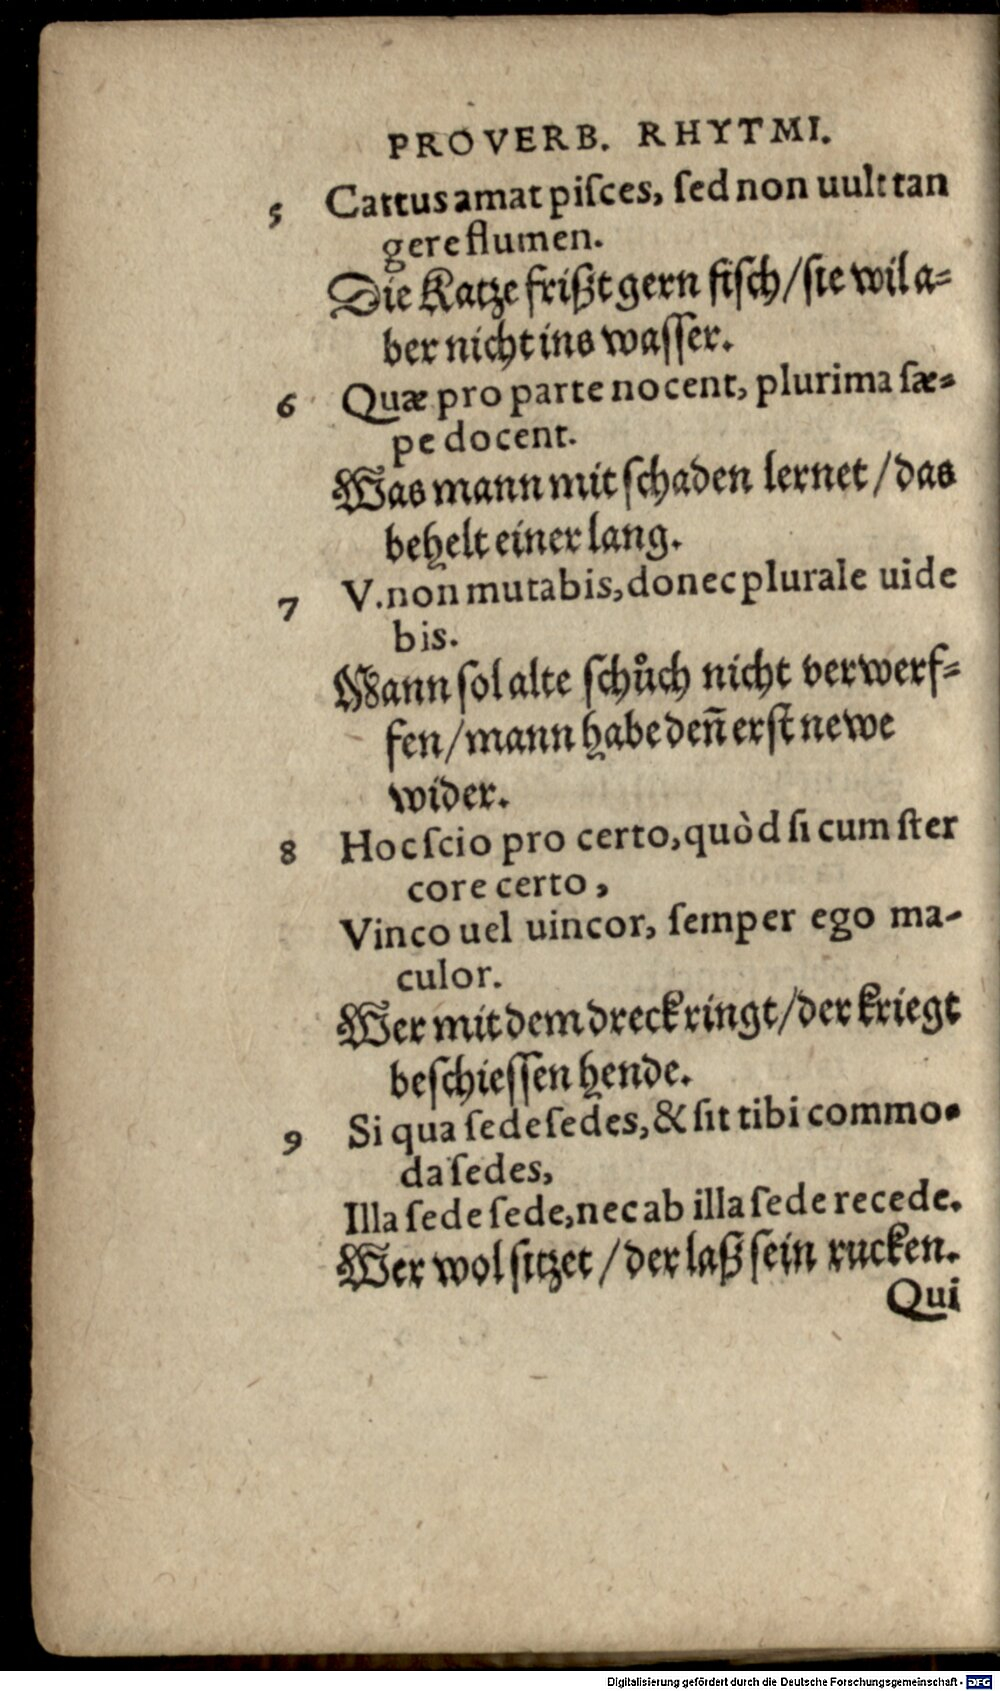 PROVERB. RHYTMI.
5 Cattus amat piſces, ſed non uult tan
gere flumen.
Die Katze friſzt gern fiſch/ſie wil a=
ber nicht ins waſſer.
6 Quæ pro parte nocent, plurima ſæ=
pe docent.
Was mann mit ſchaden lernet/das
behelt einer lang.
7 V. non mutabis, donec plurale uide
bis.
Mann ſol alte ſchůch nicht verwerf=
fen/mann habe deñ erſt newe
wider.
8 Hoc ſcio pro certo, quòd ſi cum ſter
core certo,
Vinco uel uincor, ſemper ego ma-
culor.
Wer mit dem dreck ringt/der kriegt
beſchieſſen hende.
9 Si qua ſede ſedes, & ſit tibi commo=
da ſedes,
Illa ſede ſede, nec ab illa ſede recede.
Wer wol ſitzet/der laß ſein rucken.
Qui
Digitalisierung gefördert durch die Deutsche Forschungsgemeinschaft - DFG